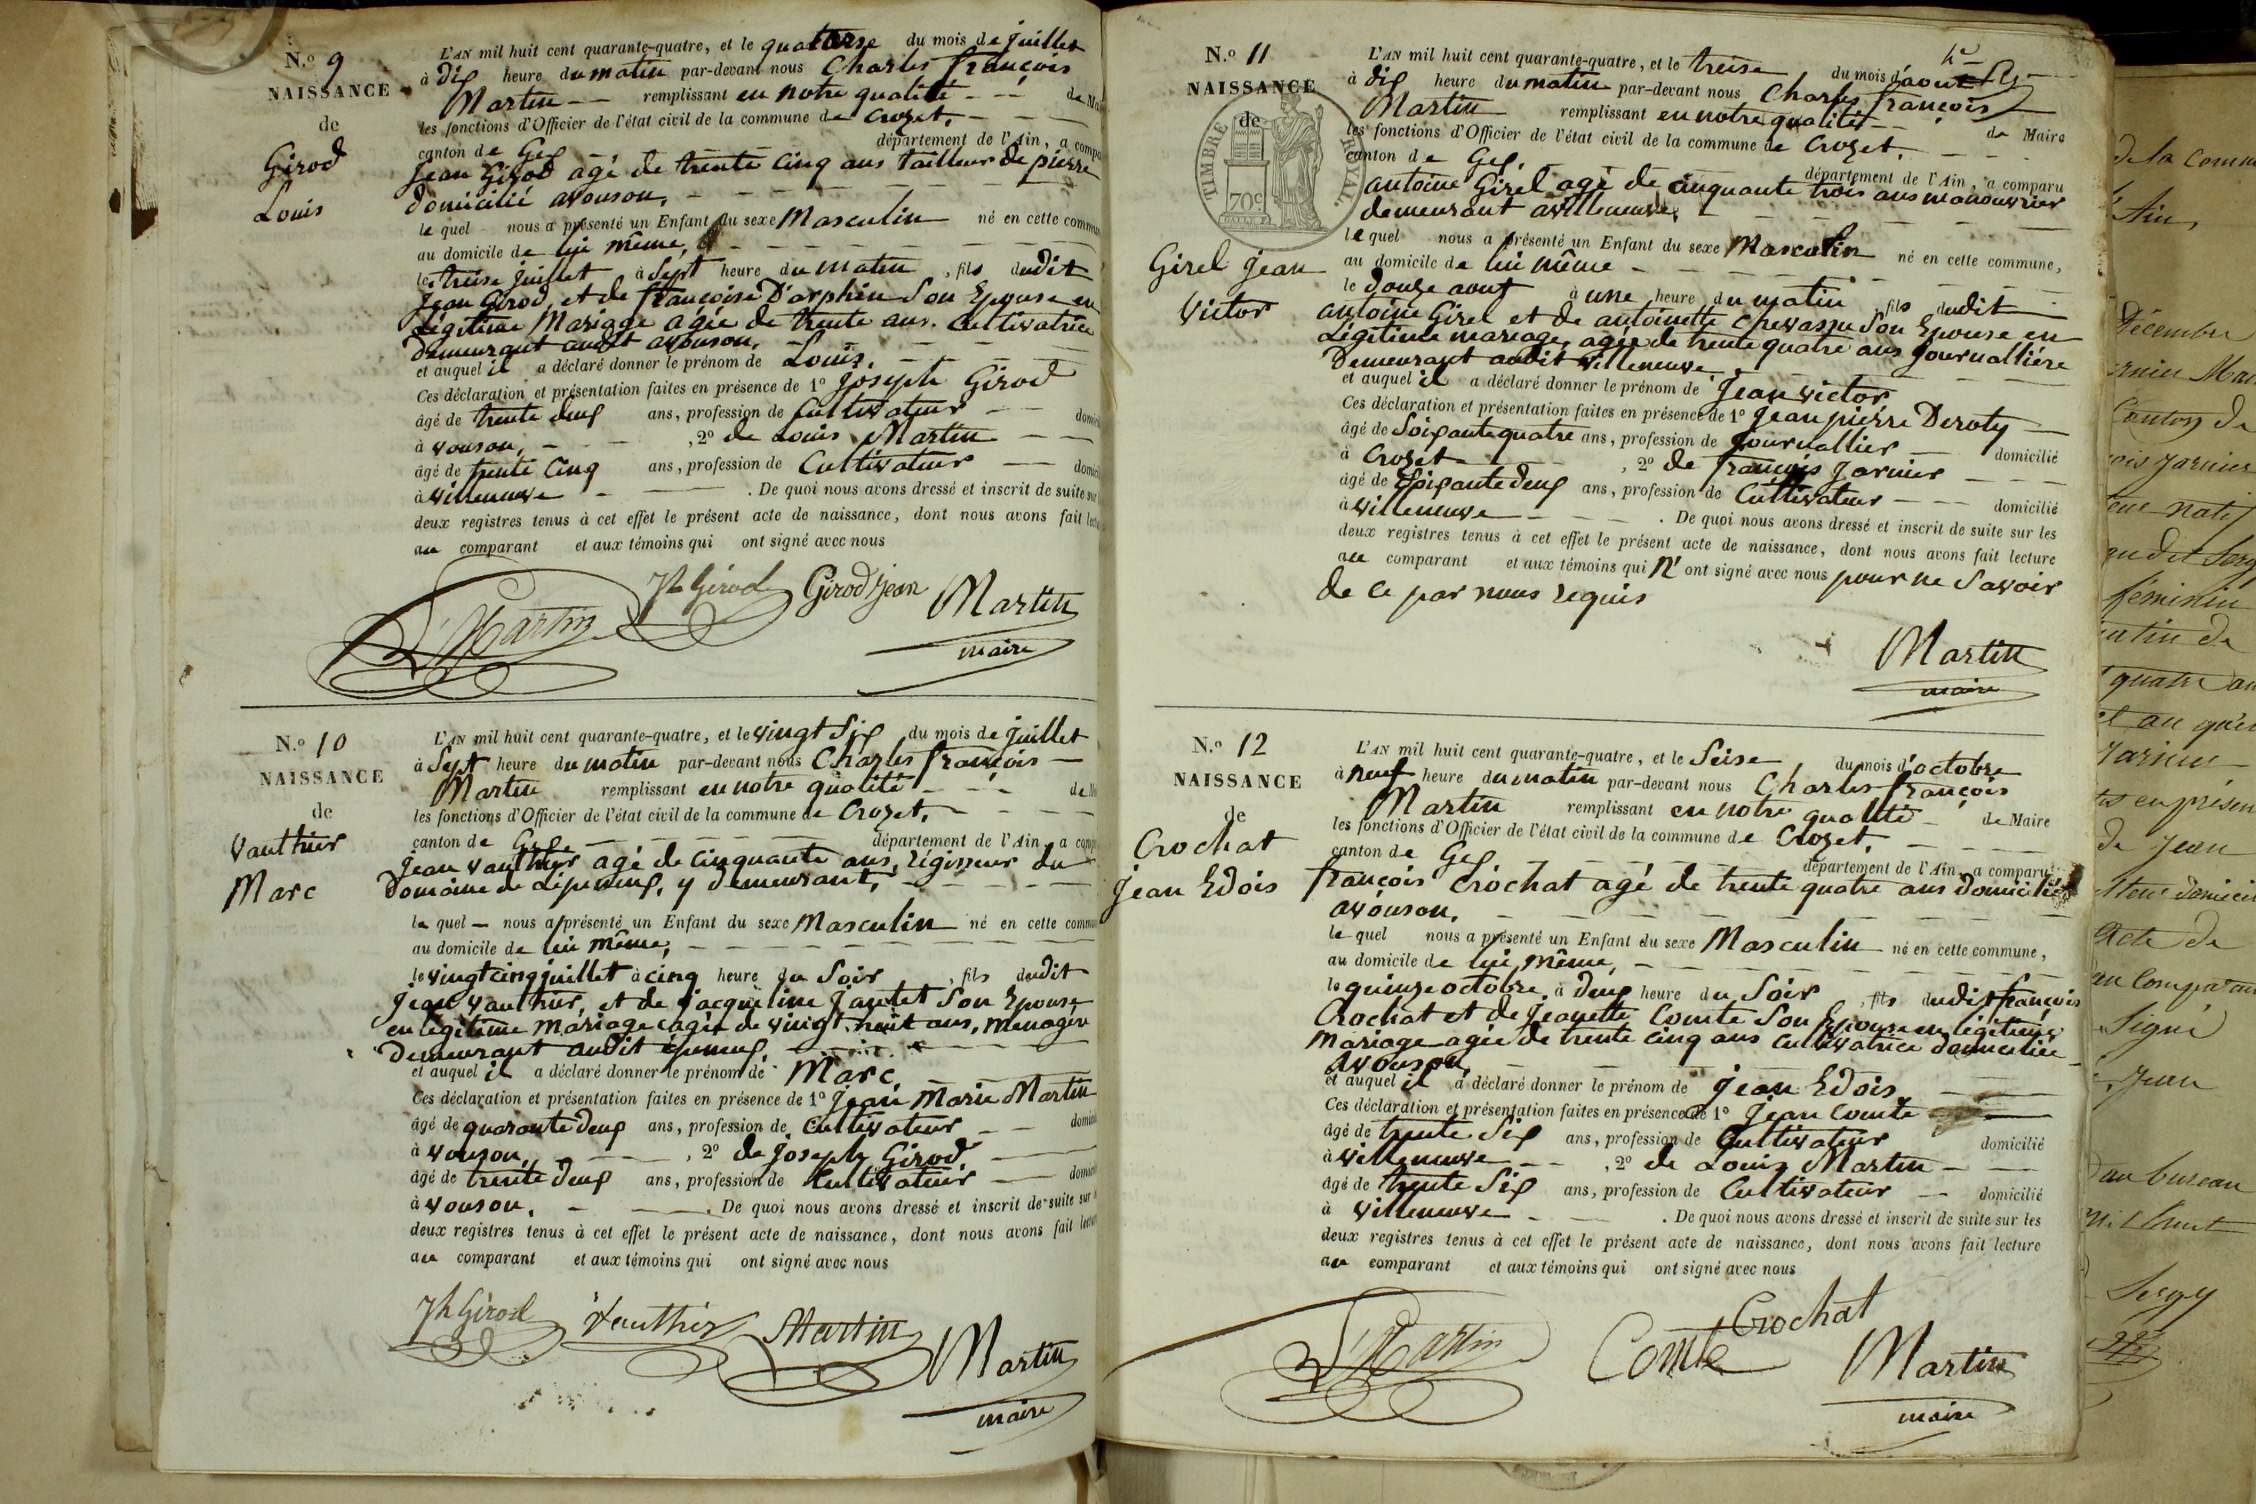 N.º 9
NAISSANCE
de
Girod
Louis
L'AN mil huit cent quarante-quatre, et le quatorse du mois de juillet
à dix heure du matin par-devant nous Charles françois
Martin remplissant en notre qualité de Mai
les fonctions d'Officier de l'état civil de la commune de Crozet.
canton de Gex département de l'Ain, a compa
Jean Girod agé de trente cinq ans tailleur de pierre
domicilié avouson,
le quel nous a présenté un Enfant du sexe Masculin né en cette commun
au domicile de lui même,
le treise juillet à sept heure du matin, fils dudit
Jean Girod, et de françoise D'arphin son Epouse en
Légitime Mariage agée de trente ans. Cultivatrice
demeurant audit avouson,
et auquel il a déclaré donner le prénom de Louis.
Ces déclaration et présentation faites en présence de 1º Joseph Girod
âgé de trente deux ans, profession de Cultivateur domici
à vouson, , 2º de Louis Martin
âgé de trente cinq ans, profession de Cultivateur domici
à villeneuve . De quoi nous avons dressé et inscrit de suite sur
deux registres tenus à cet effet le présent acte de naissance, dont nous avons fait lectu
au comparant et aux témoins qui ont signé avec nous
L Martin Jh Girod Girod jean Martin
maire
N.º 10
NAISSANCE
de
Vauthier
Marc
L'AN mil huit cent quarante-quatre, et le vingt six du mois de juillet
à sept heure du matin par-devant nous Charles françois
Martin remplissant en notre qualité de M
les fonctions d'Officier de l'état civil de la commune de Crozet,
canton de Gex département de l'Ain, a comp
Jean Vauthier agé de cinquante ans, régisseur du
Domaine de Lépeneux, y demeurant,
le quel nous a présenté un Enfant du sexe Masculin né en cette commu
au domicile de lui même,
le vingt cinq juillet à cinq heure du soir, fils dudit
Jean Vauthier, et de jacqueline Jantet son Epouse
en légitime Mariage agée de vingt huit ans, Menagère
Demeurant audit épeneux,
et auquel il a déclaré donner le prénom de Marc,
Ces déclaration et présentation faites en présence de 1º Jean Marie Martin
âgé de quarante deux ans, profession de Cultivateur domici
à vouson, , 2º de Joseph Girod
âgé de trente deux ans, profession de Cultivateur domici
à vouson, . De quoi nous avons dressé et inscrit de suite sur
deux registres tenus à cet effet le présent acte de naissance, dont nous avons fait lectu
au comparant et aux témoins qui ont signé avec nous
Jh Girod Vauthier Martin Martin
maire
N.º 11
NAISSANCE
de
TIMBRE ROYAL
70c
Girel Jean
Victor
L'AN mil huit cent quarante-quatre, et le treise du mois d'aout
à dix heure du matin par-devant nous Charles françois
Martin remplissant en notre qualité de Maire
les fonctions d'Officier de l'état civil de la commune de Crozet.
canton de Gex. département de l'Ain, a comparu
antoine Girel agé de cinquante trois ans manouvrier
demeurant avilleneuve,
le quel nous a présenté un Enfant du sexe Masculin né en cette commune,
au domicile de lui même
le douze aout à une heure du matin, fils dudit
antoine Girel et de antoinette Chevassu son Epouse en
Légitime mariage, agée de trente quatre ans journallière
Demeurant audit villeneuve
et auquel il a déclaré donner le prénom de Jean victor
Ces déclaration et présentation faites en présence de 1º Jean pierre Deroty
âgé de soixante quatre ans, profession de journallier domicilié
à Crozet , 2º de françois Jarnier
âgé de soixante deux ans, profession de Cultivateur domicilié
à villeneuve . De quoi nous avons dressé et inscrit de suite sur les
deux registres tenus à cet effet le présent acte de naissance, dont nous avons fait lecture
au comparant et aux témoins qui n'ont signé avec nous pour ne savoir
de ce par nous requis
Martin
maire
N.º 12
NAISSANCE
de
Crochat
Jean Edois
L'AN mil huit cent quarante-quatre, et le seise du mois d'octobre
à neuf heure du matin par-devant nous Charles françois
Martin remplissant en notre qualité de Maire
les fonctions d'Officier de l'état civil de la commune de Crozet,
canton de Gex département de l'Ain, a comparu
françois Crochat agé de trente quatre ans domicilié
avouson,
le quel nous a présenté un Enfant du sexe Masculin né en cette commune,
au domicile de lui même,
le quinze octobre à deux heure du soir, fils dudit françois
Crochat et de Jeanette Comte son Epouse en légitime
mariage agée de trente cinq ans cultivatrice domiciliée
avouson,
et auquel il a déclaré donner le prénom de Jean Edois,
Ces déclaration et présentation faites en présence de 1º Jean Comte
âgé de trente six ans, profession de Cultivateur domicilié
à villeneuve , 2º de Louis Martin
âgé de trente six ans, profession de Cultivateur domicilié
à villeneuve . De quoi nous avons dressé et inscrit de suite sur les
deux registres tenus à cet effet le présent acte de naissance, dont nous avons fait lecture
au comparant et aux témoins qui ont signé avec nous
L Martin Comte Crochat Martin
maire
de la Commu
Ain,
Décembre
Canton de
natif
féminin
matin de
quatre an
et au qu'el
en présen
de Jean
Acte de
au Comparant
Signé
Juen
au bureau
Sergy